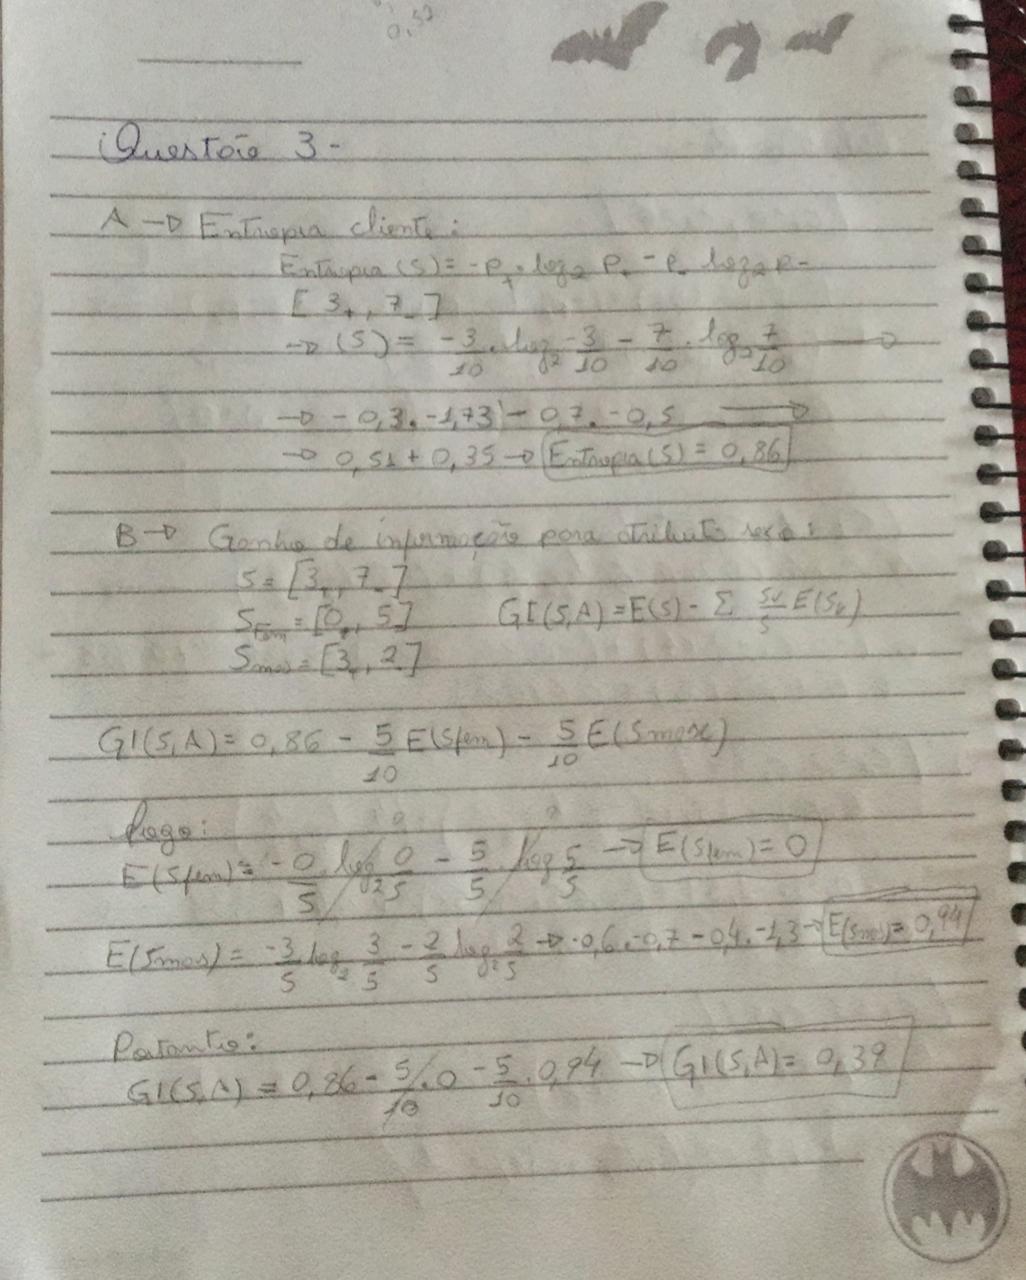 0,52
Questão 3-
A → Entropia cliente:
Entropia (S) = -P₊ . log₂ P₊ - P₋ log₂ P-
[ 3₊ , 7₋ ]
→ (S) = -3/10 . log₂ -3/10 - 7/10 . log₂ 7/10 →
→ - 0,3 . -1,73 - 0,7 . -0,5 →
→ 0,51 + 0,35 → Entropia (S) = 0,86
B → Ganho de informação para atributo sexo:
S = [3₊, 7₋]
S_fem = [0₊, 5₋] GI(S,A) = E(S) - Σ Sv/S E(Sv)
S_mas = [3₊, 2₋]
GI(S,A) = 0,86 - 5/10 E(Sfem) - 5/10 E(Smasc)
Logo:
E(Sfem) = -0/5 log₂ 0/5 - 5/5 log 5/5 → E(Sfem) = 0
E(Smas) = -3/5 log₂ 3/5 - 2/5 log₂ 2/5 → -0,6 . -0,7 - 0,4 . -1,3 → E(Smas) = 0,94
Portanto:
GI(S,A) = 0,86 - 5/10 . 0 - 5/10 . 0,94 → GI(S,A) = 0,39